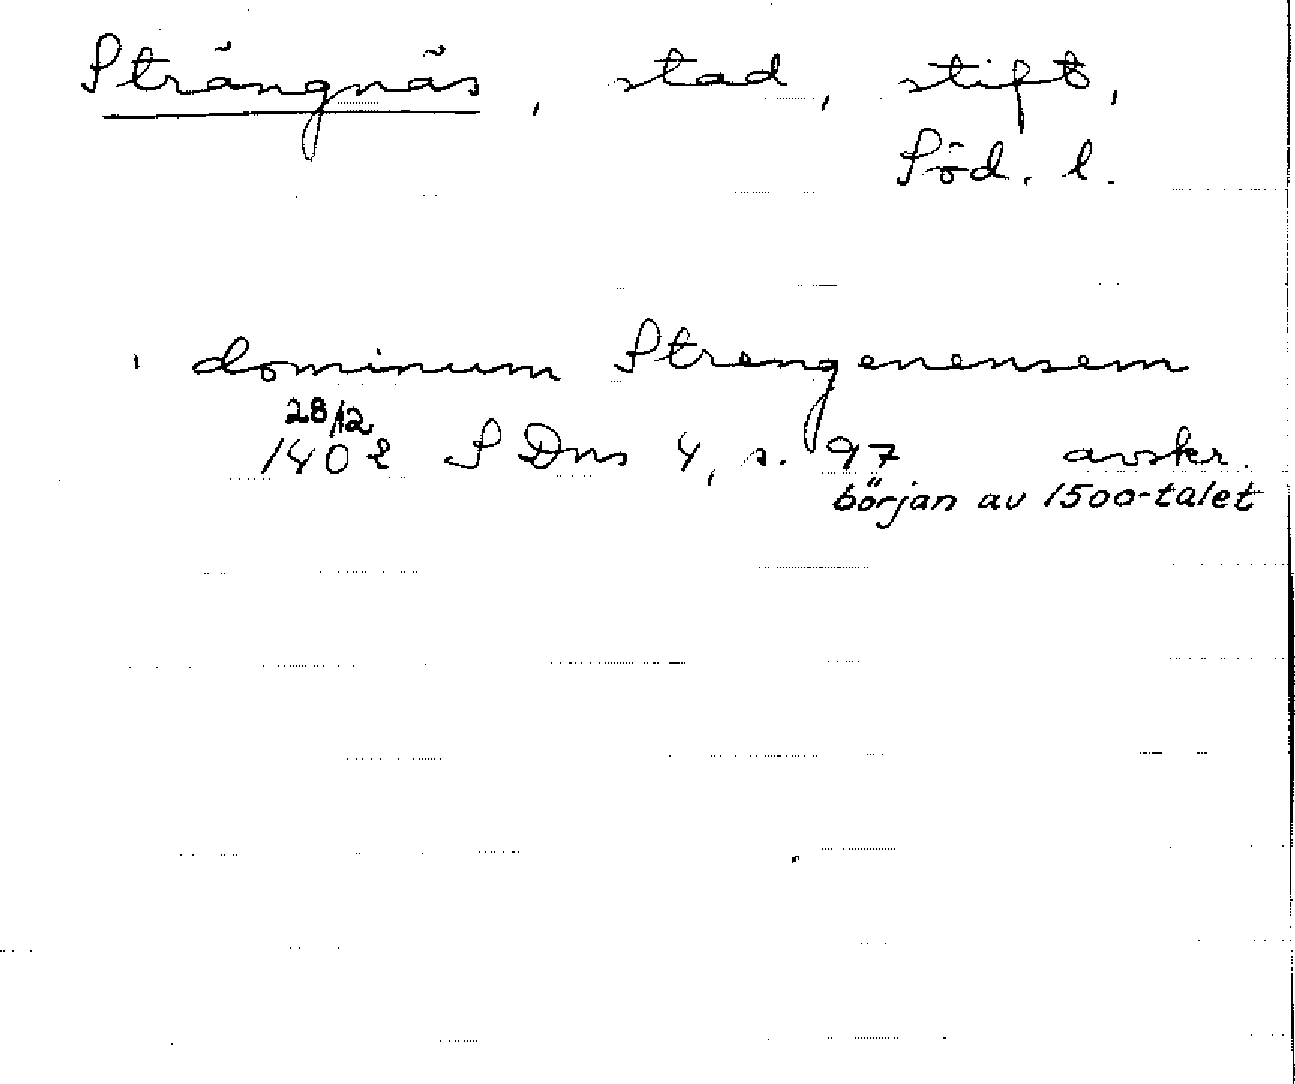 Strängnäs, stad, stift,
Söd. l.
dominum Strengenensem
28/12
1402 SDns 4, s. 97 avskr.
början av 1500-talet